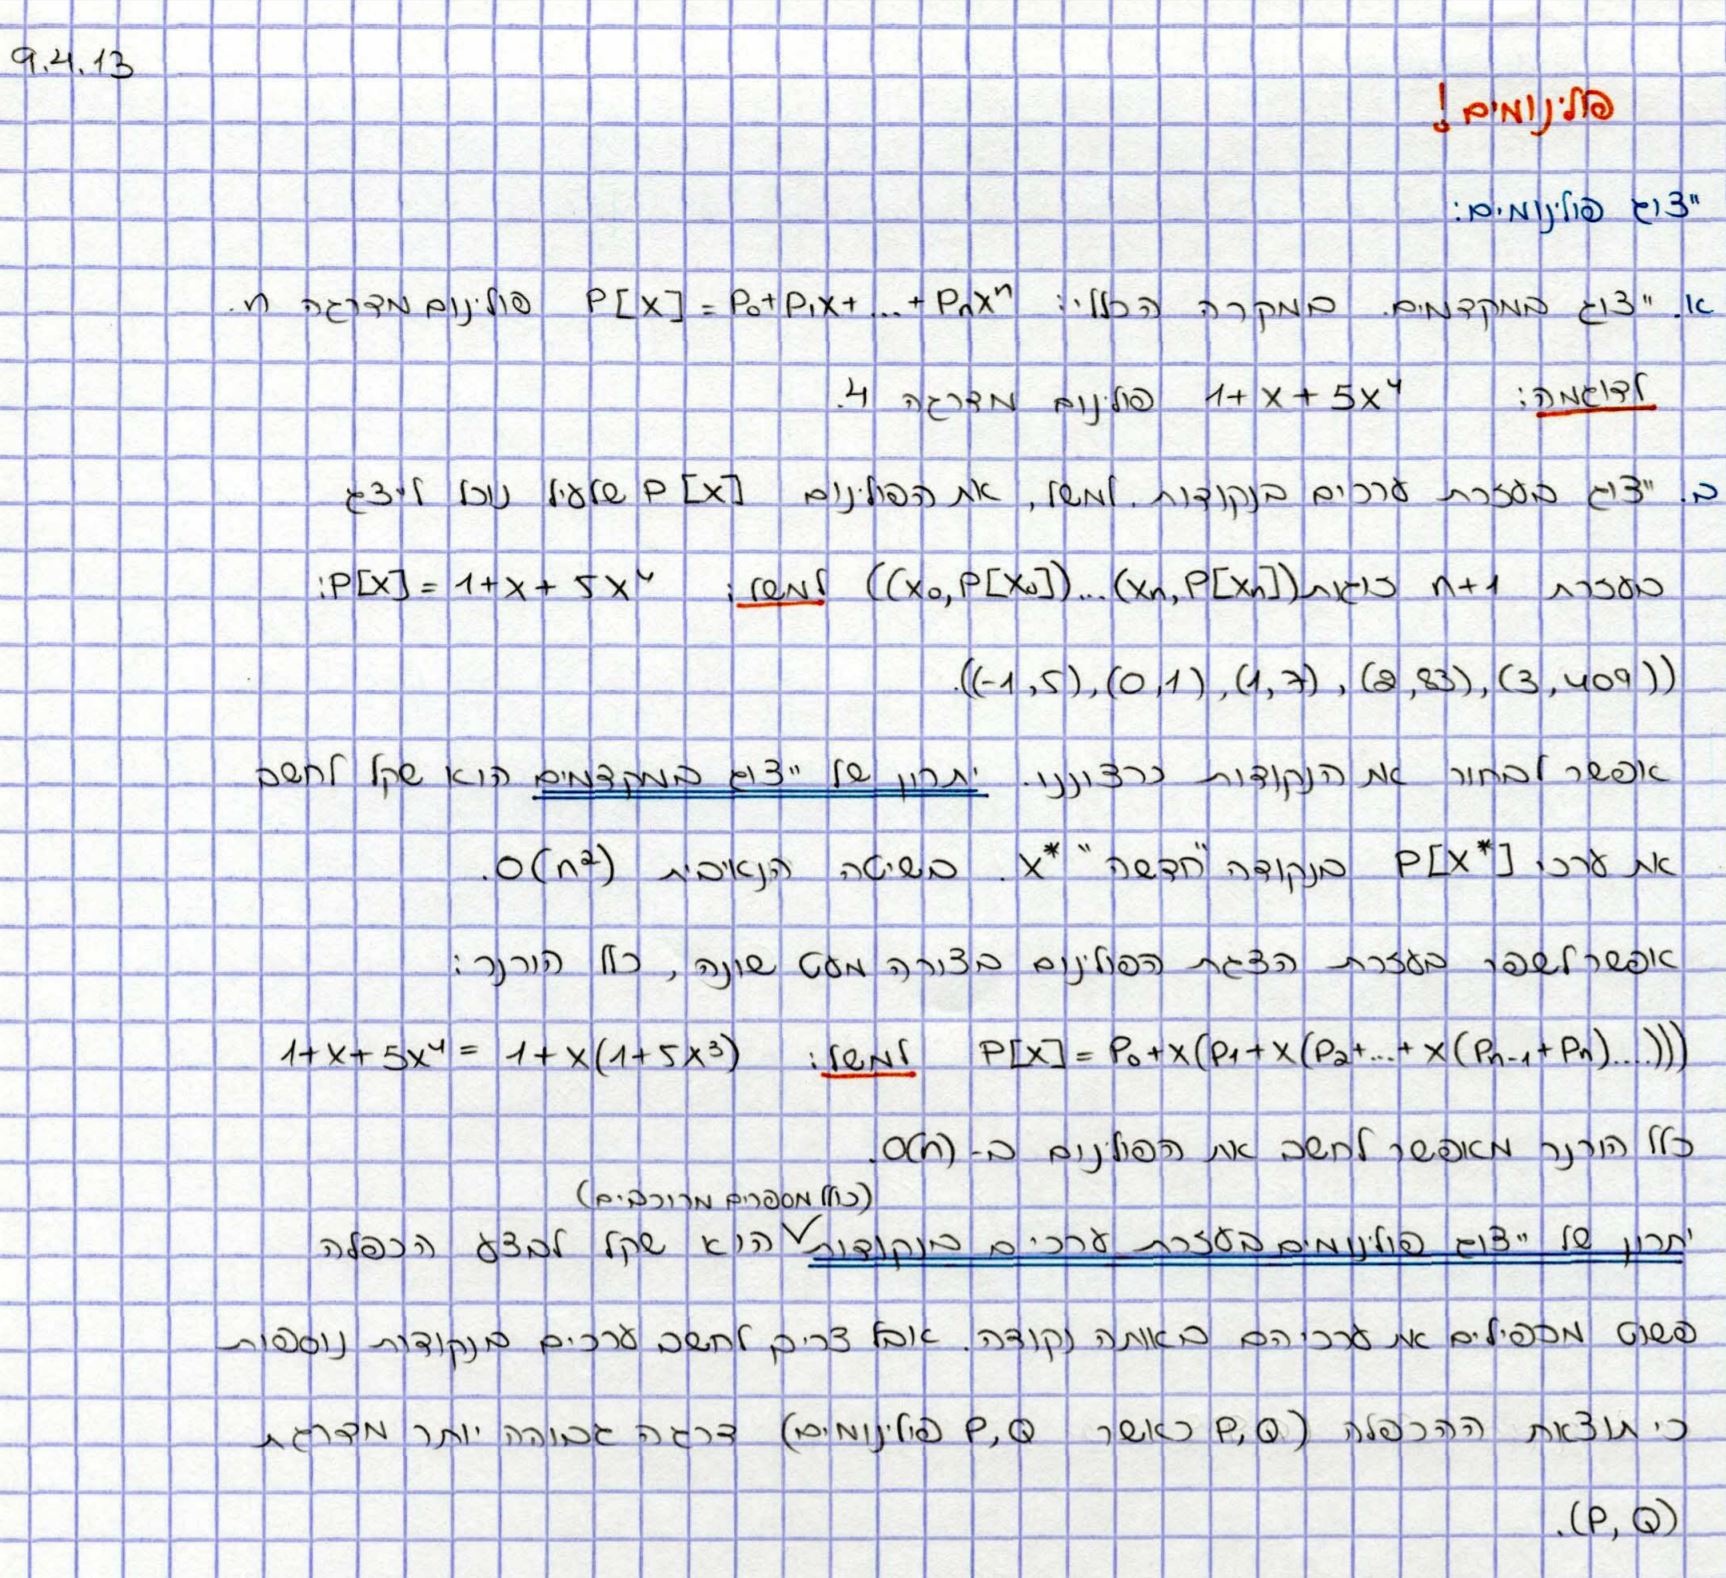 9.4.13
פולינומים!
ייצוג פולינומים:
א. ייצוג במקדמים. במקרה הכללי: P[X] = P₀+P₁X+...+PₙXⁿ פולינום מדרגה n.
לדוגמה: 1+X+5X⁴ פולינום מדרגה 4.
ב. ייצוג בעזרת ערכים בנקודות. למשל, את הפולינום P[X] שלעיל נוכל לייצג
בעזרת n+1 זוגות ((X₀,P[X₀])...(Xₙ,P[Xₙ]) למשל: P[X] = 1+X+5X⁴:
((-1,5),(0,1),(1,7),(2,83),(3,409)).
אפשר לבחור את הנקודות כרצוננו. יתרון של ייצוג במקדמים הוא שקל לחשב
את ערכי P[X*] בנקודה "חדשה" X*. בשיטה הנאיבית O(n²).
אפשר לשפר בעזרת הצגת הפולינום בצורה מעט שונה, כלל הורנר:
P[X] = P₀+X(P₁+X(P₂+...+X(Pₙ₋₁+Pₙ)....))) למשל: 1+X+5X⁴ = 1+X(1+5X³)
כלל הורנר מאפשר לחשב את הפולינום ב- O(n).
(כולל מספרים מרוכבים)
יתרון של ייצוג פולינומים בעזרת ערכים בנקודות הוא שקל לבצע הכפלה
פשוט מכפילים את ערכיהם באותה נקודה. אבל צריך לחשב ערכים בנקודות נוספות
כי תוצאת ההכפלה (P,Q כאשר P,Q פולינומים) דרגה גבוהה יותר מדרגת
(P,Q).